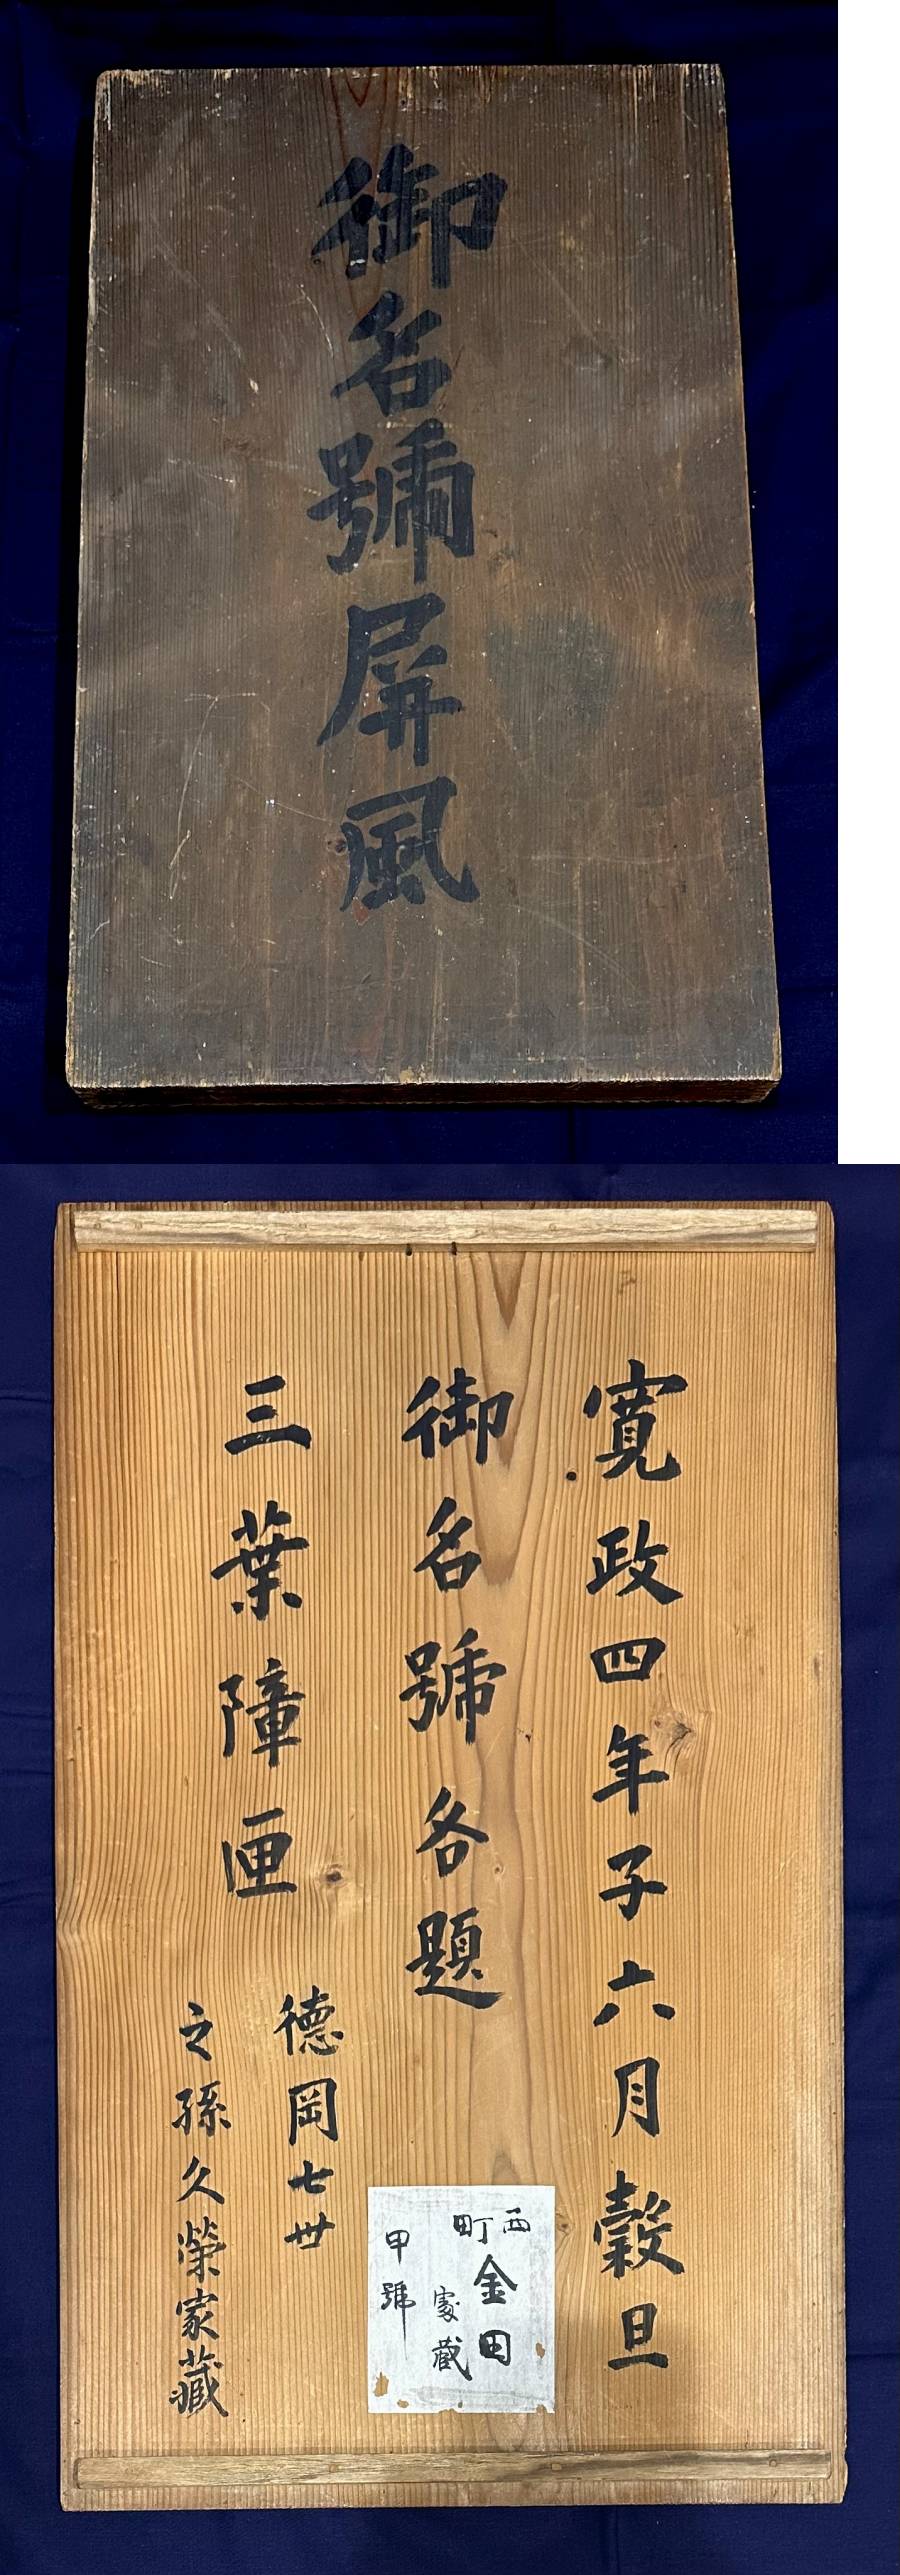 御名號屏風
寛政四年子六月穀旦
御名號各題
三葉障匣
德岡七世
之孫久榮家藏
西町
金田
家蔵
甲號